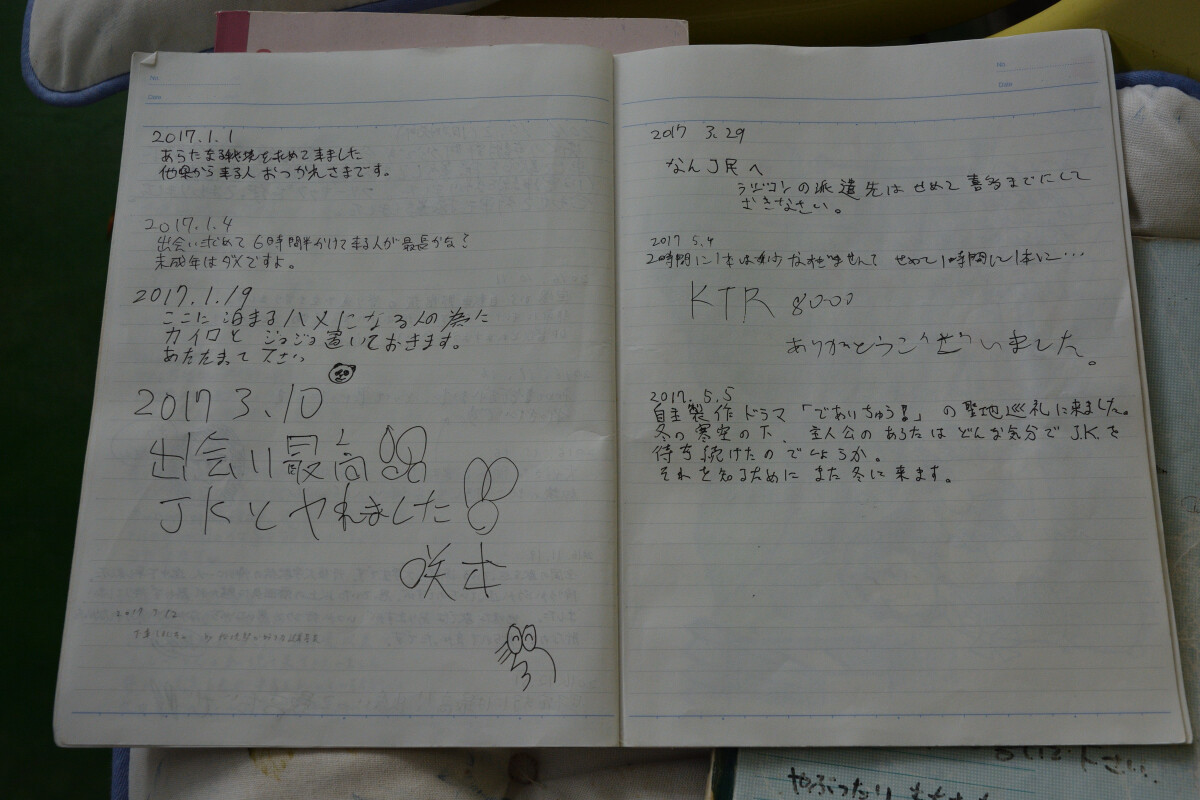 No.
Date
2017.1.1
あらたなる秘境を求めて来ました
他県から来る人おつかれさまです。
2017.1.4
出会い求めて6時間半かけて来る人が最長かな?
未成年はダメですよ。
2017.1.19
ここに泊まるハメになる人の為に
カイロと ジョジョ置いておきます。
あたたまって下さい
2017 3.10
出会い最高
JKとヤれました
咲本
2017 3.12
No.
Date
2017 3.29
なんJ民へ
ラジコンの派遣先はせめて喜多までにして
おきなさい。
2017 5.4
2時間に1本は少なすぎませんて せめて1時間に1本に…
KTR 8000
ありがとうございました。
2017.5.5
自主製作ドラマ「であいちゅう!」の聖地巡礼に来ました。
冬の寒空の下、主人公のあらたはどんな気分でJ.K.を
待ち続けたのでしょうか。
それを知るためにまた冬に来ます。
下さい。
やぶったり